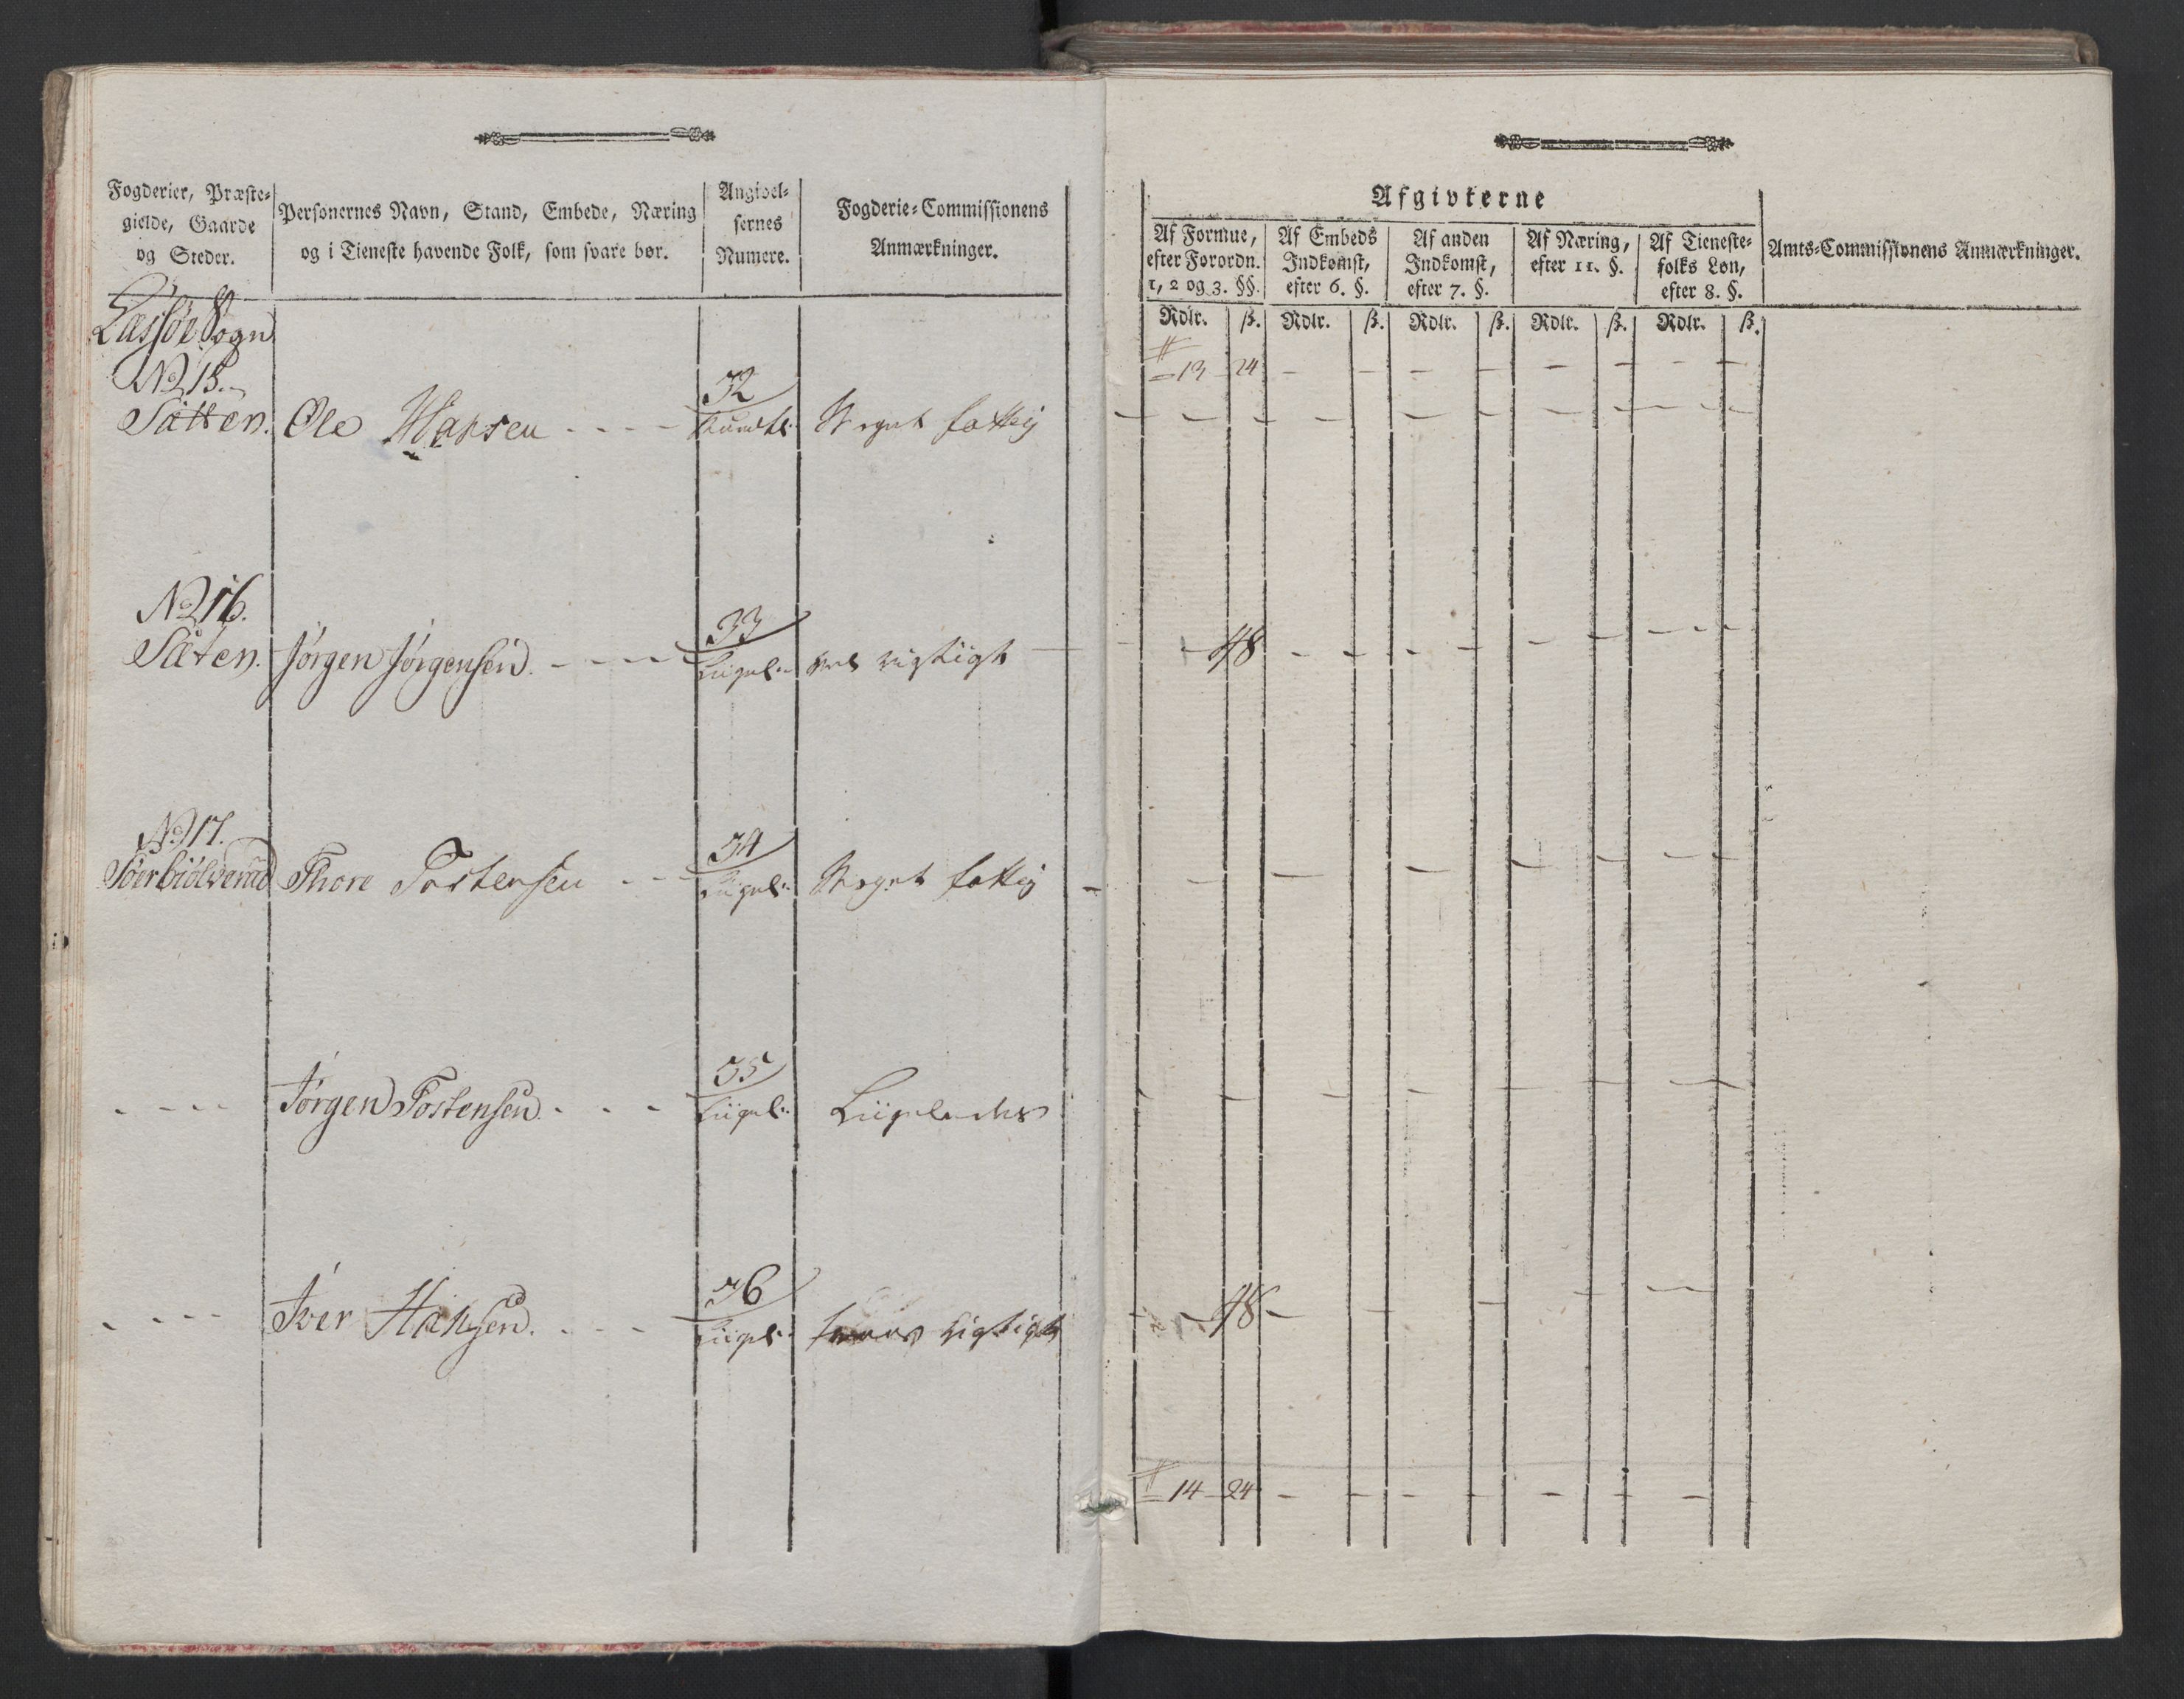 Fogderier, Præste-
gielde, Gaarde
og Steder.
Personernes Navn, Stand, Embede, Næring
og i Tieneste havende Folk, som svare bør.
Angivel-
sernes
Numere.
Fogderie-Commissionens
Anmærkninger.
Sogn
No 15.
Sätten. Ole Hansen - - - -
32
Meget fattig
No 16.
Säten. Jörgen Jörgensen. - - - -
33
Ligel: rigtigt
No 17.
Thore Tostensen - - -
34
Ligel: Meget fattig
- - - - Jörgen Tostensen. - - -
35
Ligel: Ligeledes
- - - - Iver Hansen. - - -
36
Ligel: rigtigt
Afgivterne
Af Formue,
efter Forordn.
1, 2 og 3. §§.
Af Embeds
Indkomst,
efter 6. §.
Af anden
Indkomst,
efter 7. §.
Af Næring,
efter 11. §.
Af Tieneste-
folks Løn,
efter 8. §.
Amts-Commissionens Anmærkninger.
Rdlr. ß. Rdlr. ß. Rdlr. ß. Rdlr. ß. Rdlr. ß.
13 24 - - - - - - - -
- - - - - - - - - -
- 48 - - - - - - - -
- - - - - - - -
- - - - - - - -
- 48 - - - - - -
14 24 - - - - - - -